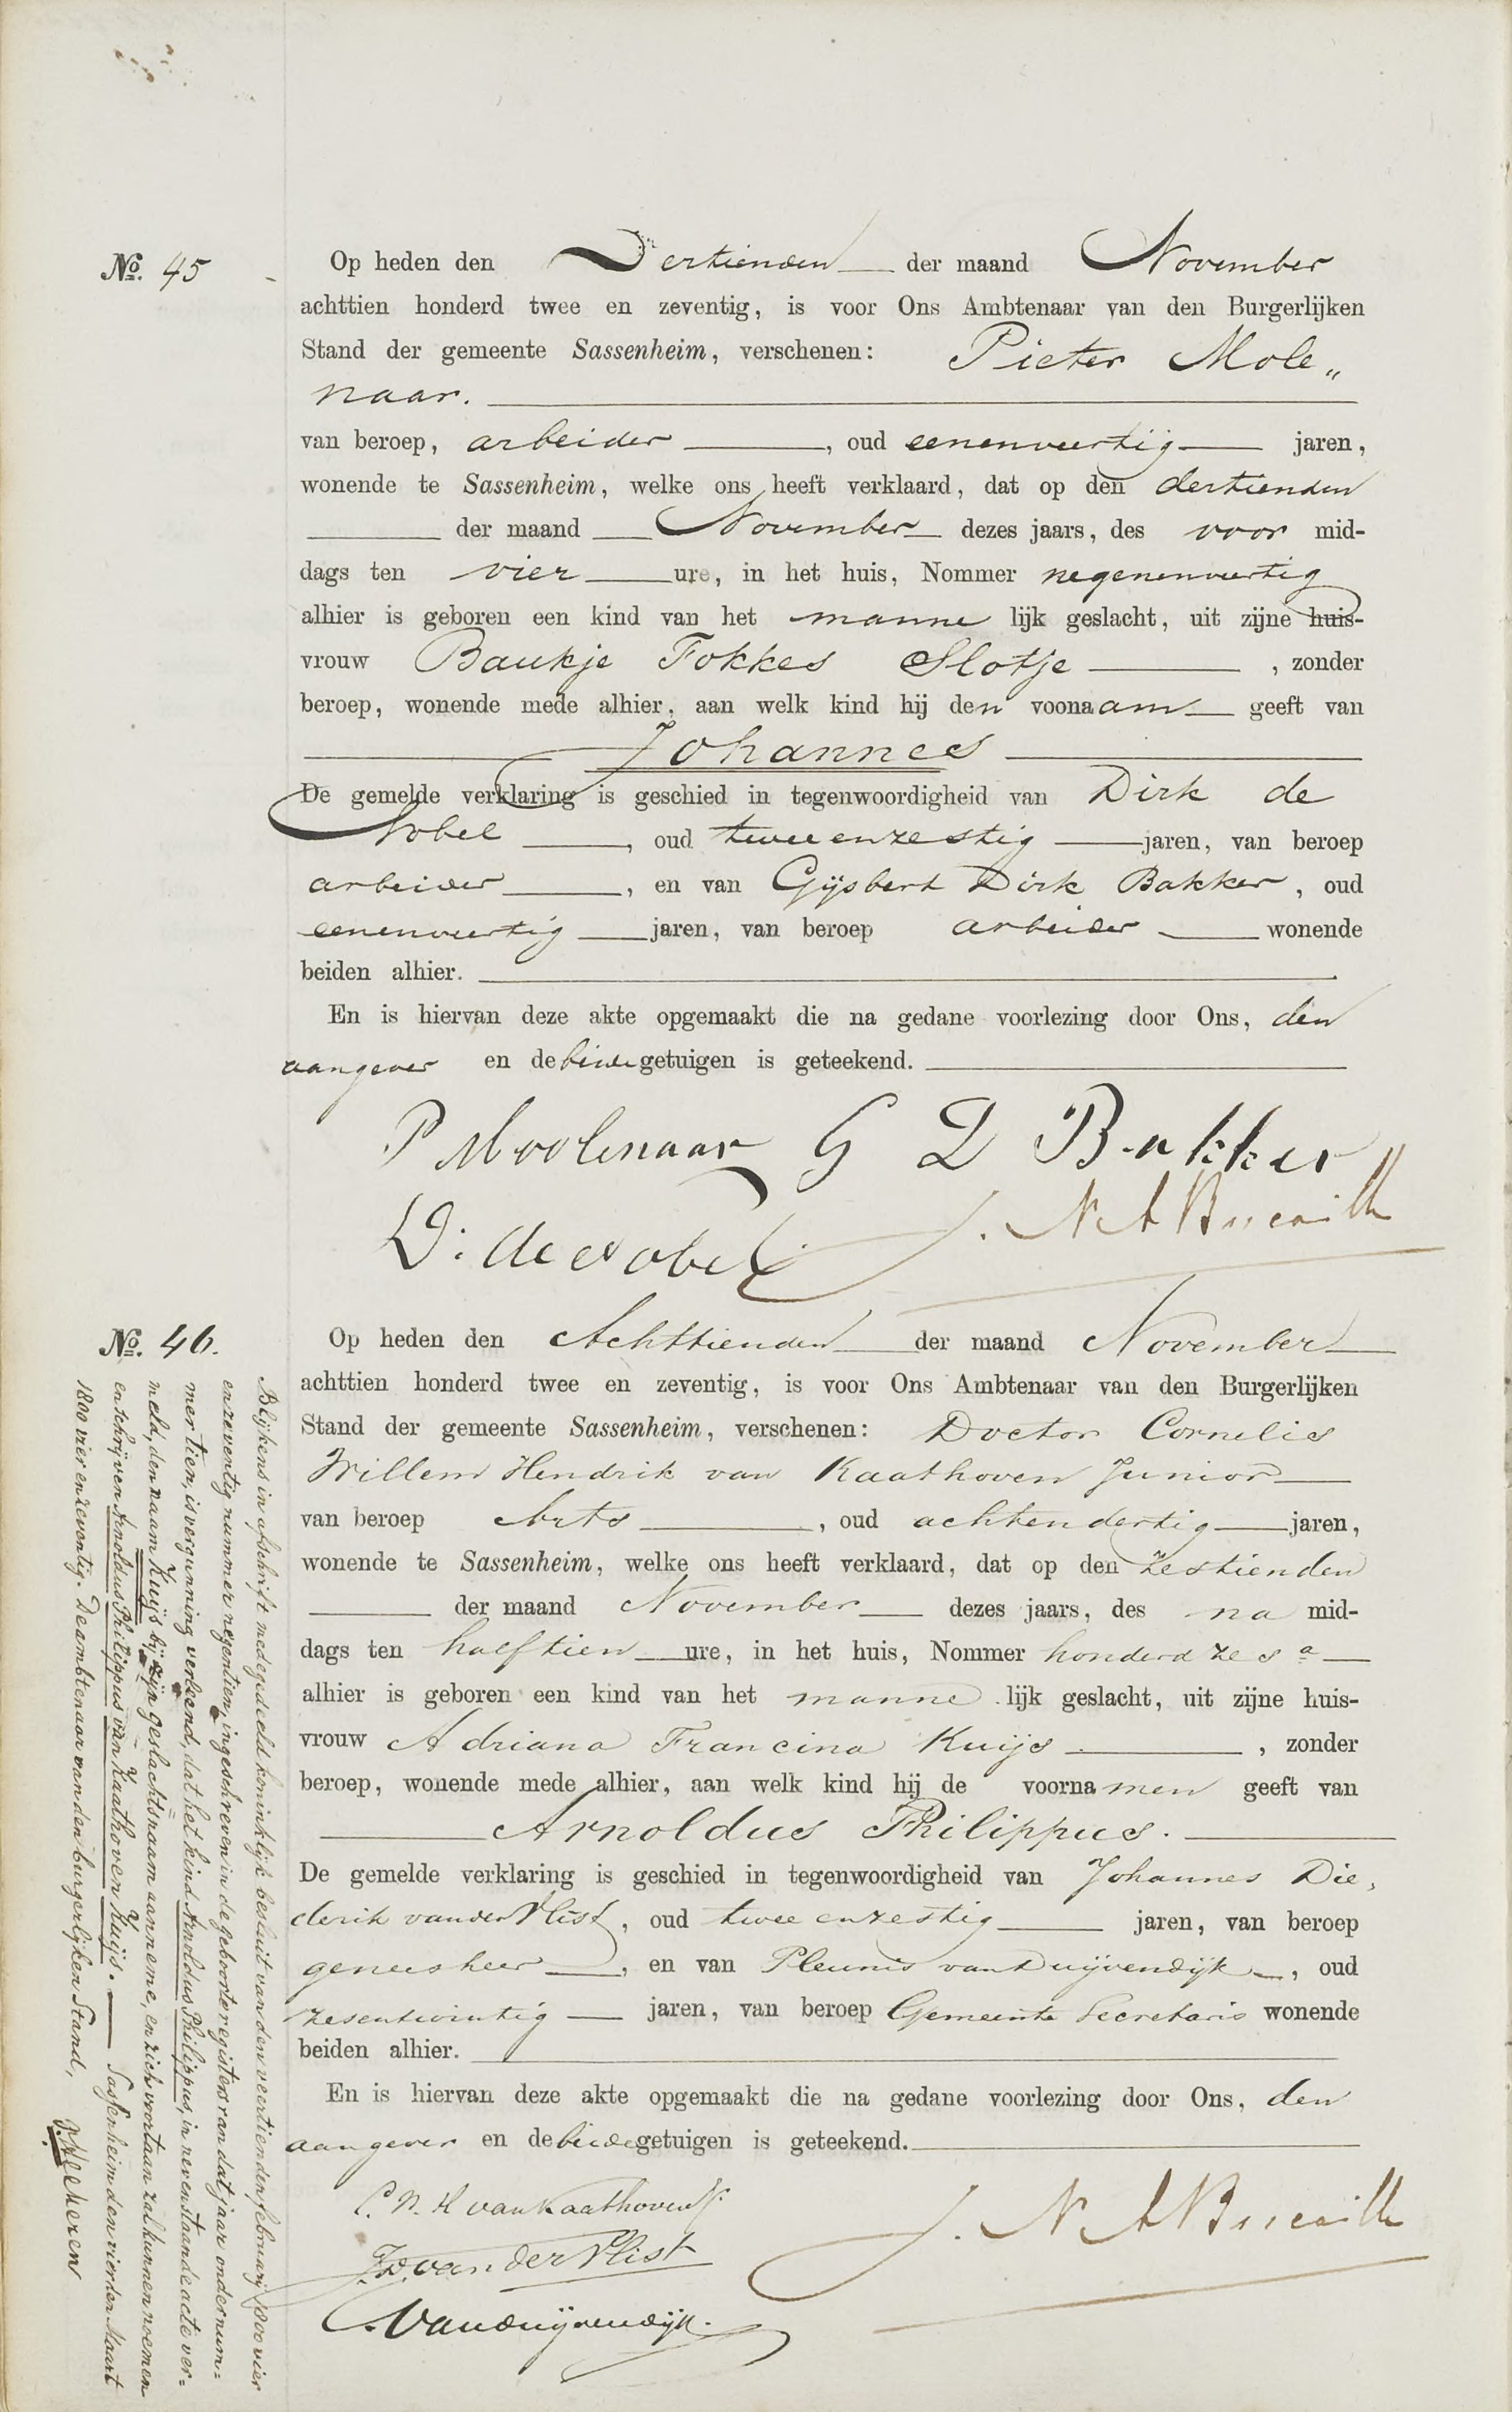 No. 45
Op heden den Dertienden der maand November
achttien honderd twee en zeventig, is voor Ons Ambtenaar van den Burgerlijken
Stand der gemeente Sassenheim, verschenen: Pieter Mole„
naar.
van beroep, arbeider, oud eenenveertig jaren,
wonende te Sassenheim, welke ons heeft verklaard, dat op den dertienden
der maand November dezes jaars, des voor mid-
dags ten vier ure, in het huis, Nommer negenenveertig
alhier is geboren een kind van het manne lijk geslacht, uit zijne huis-
vrouw Baukje Fokkes Slotje, zonder
beroep, wonende mede alhier, aan welk kind hij den voonaam geeft van
Johannes
De gemelde verklaring is geschied in tegenwoordigheid van Dirk de
Nobel, oud tweeenzestig jaren, van beroep
arbeider, en van Gijsbert Dirk Bakker, oud
eenenveertig jaren, van beroep arbeider wonende
beiden alhier.
En is hiervan deze akte opgemaakt die na gedane voorlezing door Ons, den
aangever en de beide getuigen is geteekend.
P Moolenaar G D Bakker
D: de Nobel J. N A Bucaille
No. 46.
Op heden den Achttienden der maand November
achttien honderd twee en zeventig, is voor Ons Ambtenaar van den Burgerlijken
Stand der gemeente Sassenheim, verschenen: Doctor Cornelis
Willem Hendrik van Kaathoven Junior
van beroep Arts, oud achtendertig jaren,
wonende te Sassenheim, welke ons heeft verklaard, dat op den zestienden
der maand November dezes jaars, des na mid-
dags ten half tien ure, in het huis, Nommer honderd zes a
alhier is geboren een kind van het manne lijk geslacht, uit zijne huis-
vrouw Adriana Francina Kuijs, zonder
beroep, wonende mede alhier, aan welk kind hij de voorna men geeft van
Arnoldus Philippus.
De gemelde verklaring is geschied in tegenwoordigheid van Johannes Die,
derik van der Vlist, oud twee enzestig jaren, van beroep
geneesheer, en van Pleunis van Duijvendijk, oud
zesentwintig jaren, van beroep Gemeente Secretaris wonende
beiden alhier.
En is hiervan deze akte opgemaakt die na gedane voorlezing door Ons, den
aangever en de beide getuigen is geteekend.
C. W. H van Kaathoven Jr.
J. N A Bucaille
J D van der Vlist
P. van Duijvendijk.
Blijkens in afschrift medegedeeld koninklijk besluit van den veertienden februarij 1800 vier
en zeventig nummer negentien, ingeschreven in de geboorteregisters van dat jaar onder num=
mer tien, is vergunning verleend, dat het kind Arnoldus Philippus, in nevenstaande acte ver=
meld, den naam Kuijs bij zijn geslachtsnaam aanneme, en zich voortaan zal kunnen noemen
en schrijven Arnoldus Philippus van Kaathoven Kuijs. Sassenheim den vierden Maart
1800 vier en zeventig. De ambtenaar van den burgerlijken Stand,